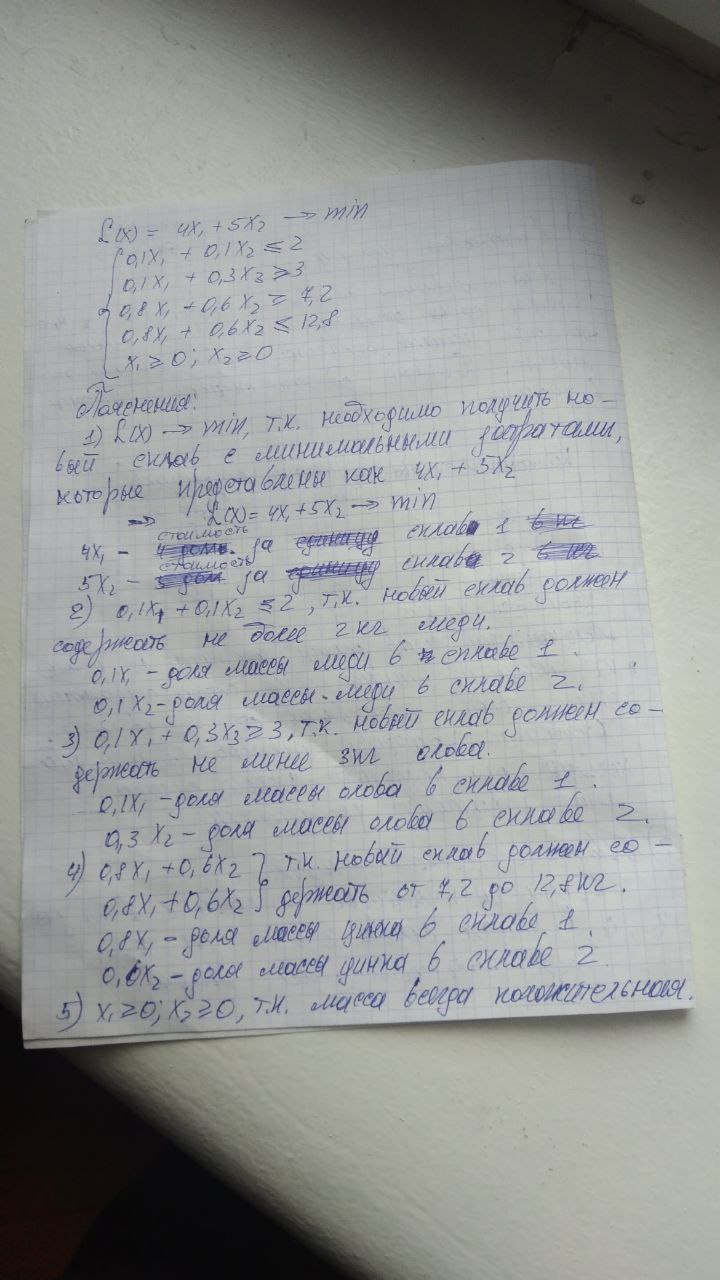 L(x) = 4x₁ + 5x₂ → min
0,1x₁ + 0,1x₂ ≤ 2
0,1x₁ + 0,3x₃ ≥ 3
0,8x₁ + 0,6x₂ ≥ 7,2
0,8x₁ + 0,6x₂ ≤ 12,8
x₁ ≥ 0; x₂ ≥ 0
Пояснения:
1) L(x) → min, т.к. необходимо получить но-
вый сплав с минимальными затратами,
которые представлены как 4x₁ + 5x₂
→ L(x) = 4x₁ + 5x₂ → min
4x₁ – стоимость за сплав 1
5x₂ – стоимость за сплав 2
2) 0,1x₁ + 0,1x₂ ≤ 2, т.к. новый сплав должен
содержать не более 2 кг меди.
0,1x₁ – доля массы меди в сплаве 1.
0,1x₂ – доля массы меди в сплаве 2.
3) 0,1x₁ + 0,3x₃ ≥ 3, т.к. новый сплав должен со-
держать не менее 3 кг олова.
0,1x₁ – доля массы олова в сплаве 1.
0,3x₂ – доля массы олова в сплаве 2.
4) 0,8x₁ + 0,6x₂ } т.к. новый сплав должен со-
0,8x₁ + 0,6x₂ } держать от 7,2 до 12,8 кг.
0,8x₁ – доля массы цинка в сплаве 1.
0,6x₂ – доля массы цинка в сплаве 2
5) x₁ ≥ 0; x₂ ≥ 0, т.к. масса всегда положительная.